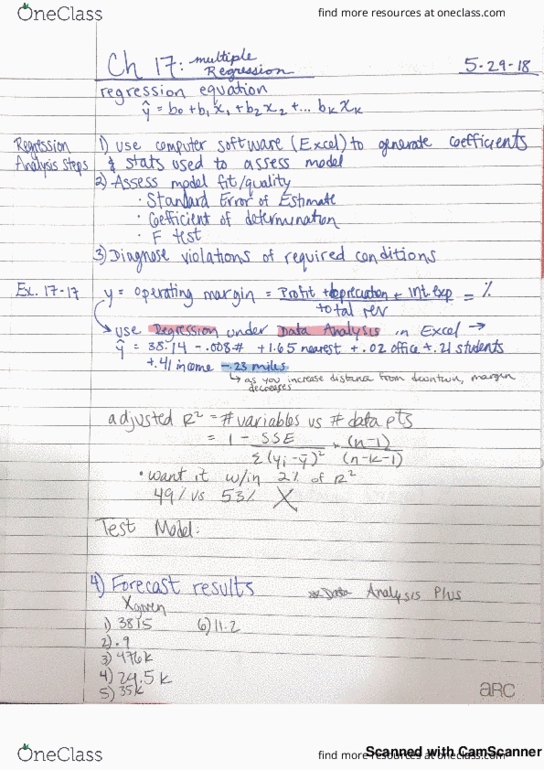 OneClass
find more resources at oneclass.com
Ch 17: multiple Regression 5-29-18
regression equation
ŷ = b0 + b1x1 + b2x2 + ... bkxk
Regression Analysis Steps
1) Use computer software (Excel) to generate coefficients
& stats used to assess model
2) Assess model fit/quality
· Standard Error of Estimate
· Coefficient of determination
· F test
3) Diagnose violations of required conditions
Ex. 17-17 y = operating margin = Profit + depreciation + int. exp / total rev = %
→ use Regression under Data Analysis in Excel →
ŷ = 38.14 - .008# + 1.65 nearest + .02 office + .21 students
+ .41 income - .23 miles
↳ as you increase distance from downtown, margin decreases
adjusted R² = # variables vs # data pts
= 1 - SSE / Σ(yi - ȳ)² * (n-1) / (n-k-1)
· want it w/in 2% of R²
49% vs 53% X
Test Model:
4) Forecast results * Data Analysis Plus
Xgiven
1) 3815 6) 11.2
2) .9
3) 476k
4) 24.5k
5) 35k
arc
OneClass
find more resources at oneclass.com
Scanned with CamScanner